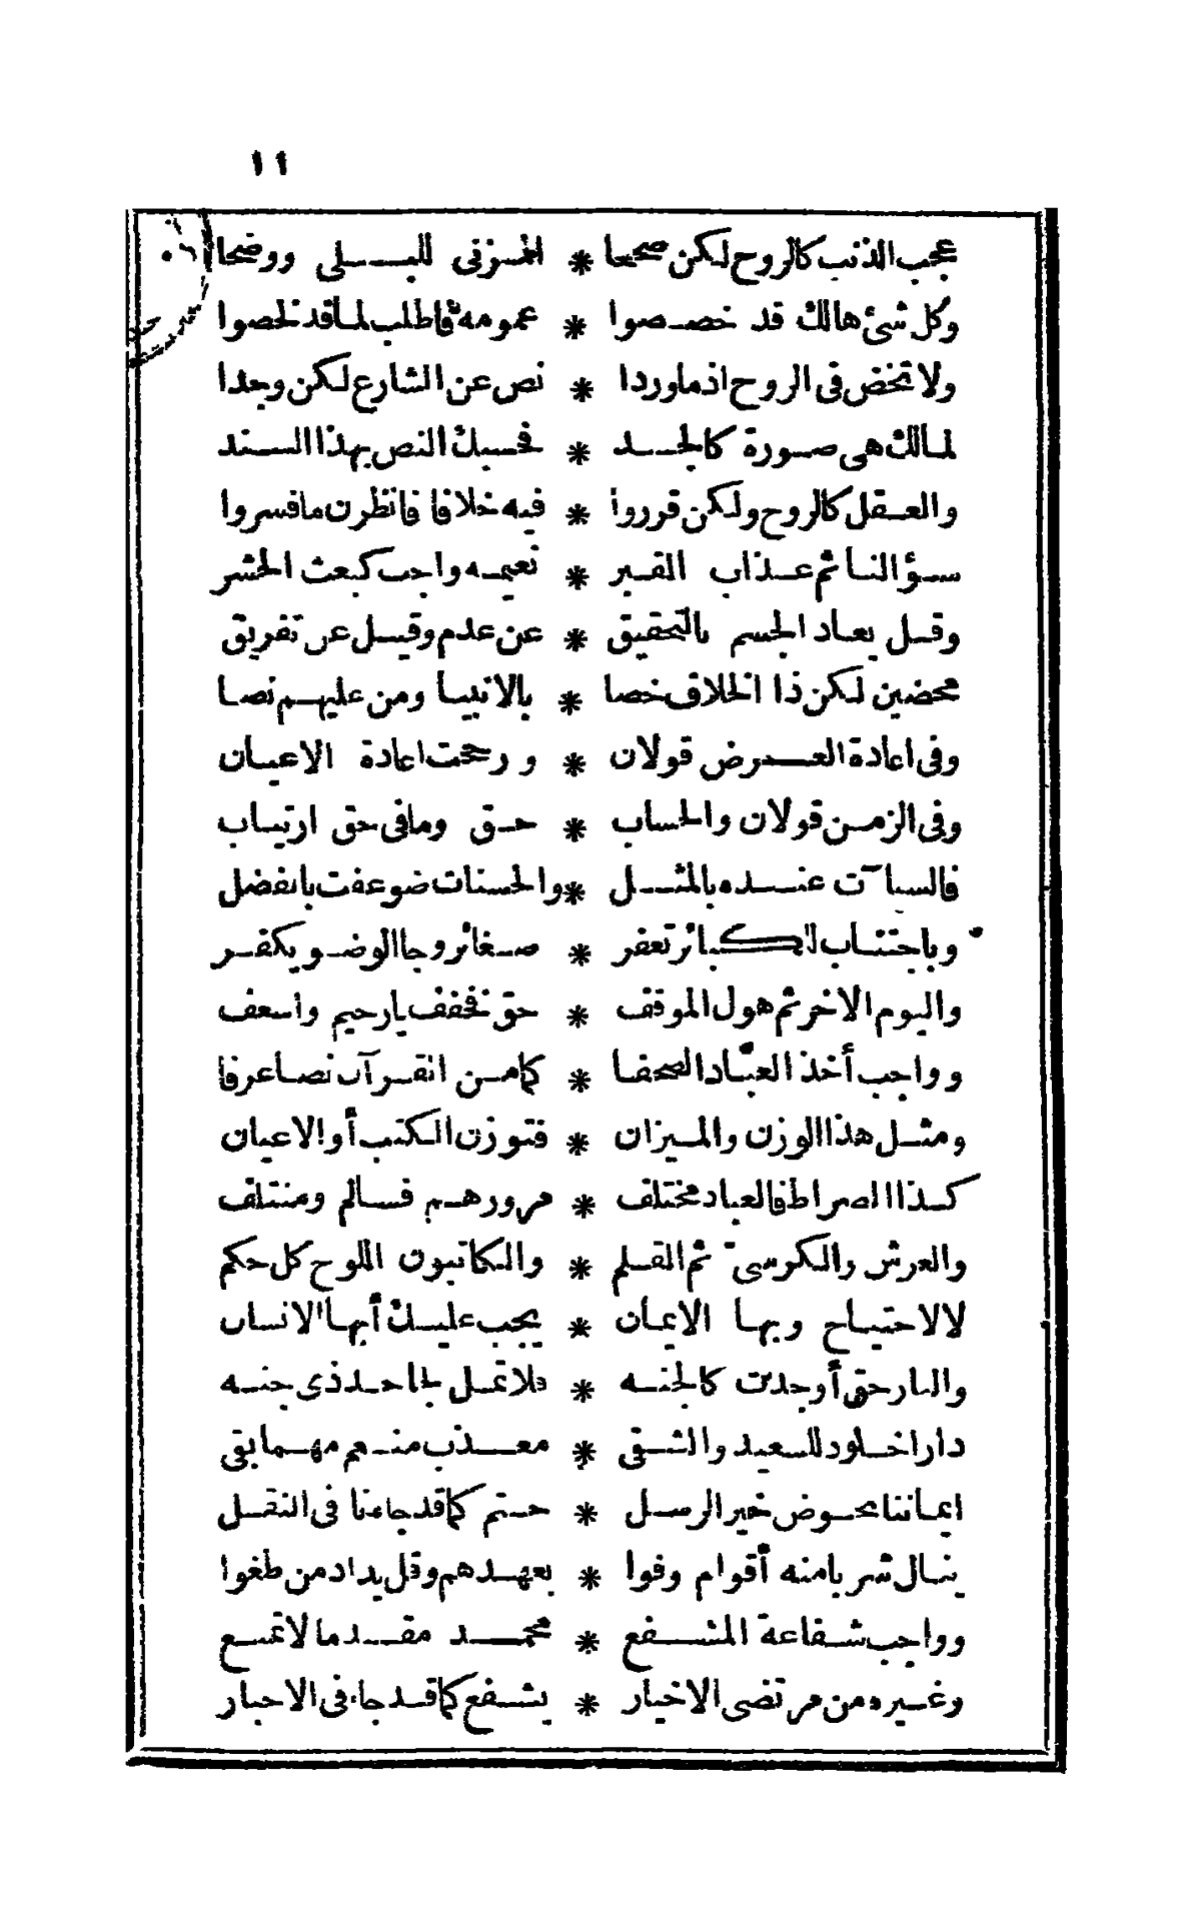 ١١
عجب الذنب كالروح لكن صححا * المزنى للبلى ووضحا
وكل شئ هالك قد خصصوا * عمومه فاطلب لما قد لخصوا
ولا تخض فى الروح اذ ما وردا * نص عن الشارع لكن وجدا
لمالك هى صورة كالجسد * فحسبك النص بهذا السند
والعقل كالروح ولكن قرروا * فيه خلافا فانظرن ما فسروا
سؤالنا ثم عذاب القبر * نعيمه واجب كبعث الحشر
وقل يعاد الجسم بالتحقيق * عن عدم وقيل عن تفريق
محضين لكن ذا الخلاف خصا * بالانبيا ومن عليهم نصا
وفى اعادة العرض قولان * ورجحت اعادة الاعيان
وفى الزمن قولان والحساب * حق وما فى حق ارتياب
فالسيآت عنده بالمثل * والحسنات ضوعفت بالفضل
وباجتناب للكبائر تغفر * صغائر وجا الوضو يكفر
واليوم الاخر ثم هول الموقف * حق فخفف يا رحيم واسعف
وواجب أخذ العبّاد الصحفا * كما من القرآن نصا عرفا
ومثل هذا الوزن والميزان * فتوزن الكتب أو الاعيان
كذا الصراط فالعباد مختلف * مرورهم فسالم ومنتلف
والعرش والكرسىّ ثم القلم * والكاتبون اللوح كل حكم
لا لاحتياج وبها الايمان * يجب عليك أيها الانسان
والنار حق أوجدت كالجنه * فلا تمل لجاحد ذى جنه
دارا خلود للسعيد والشقى * معذب منعم مهما بقى
ايماننا بحوض خير الرسل * حتم كما قد جاءنا فى النقل
ينال شربا منه أقوام وفوا * بعهدهم وقل يذاد من طغوا
وواجب شفاعة المشفع * محمد مقدما لا تمنع
وغيره من مرتضى الاخيار * يشفع كما قد جاء فى الاخبار